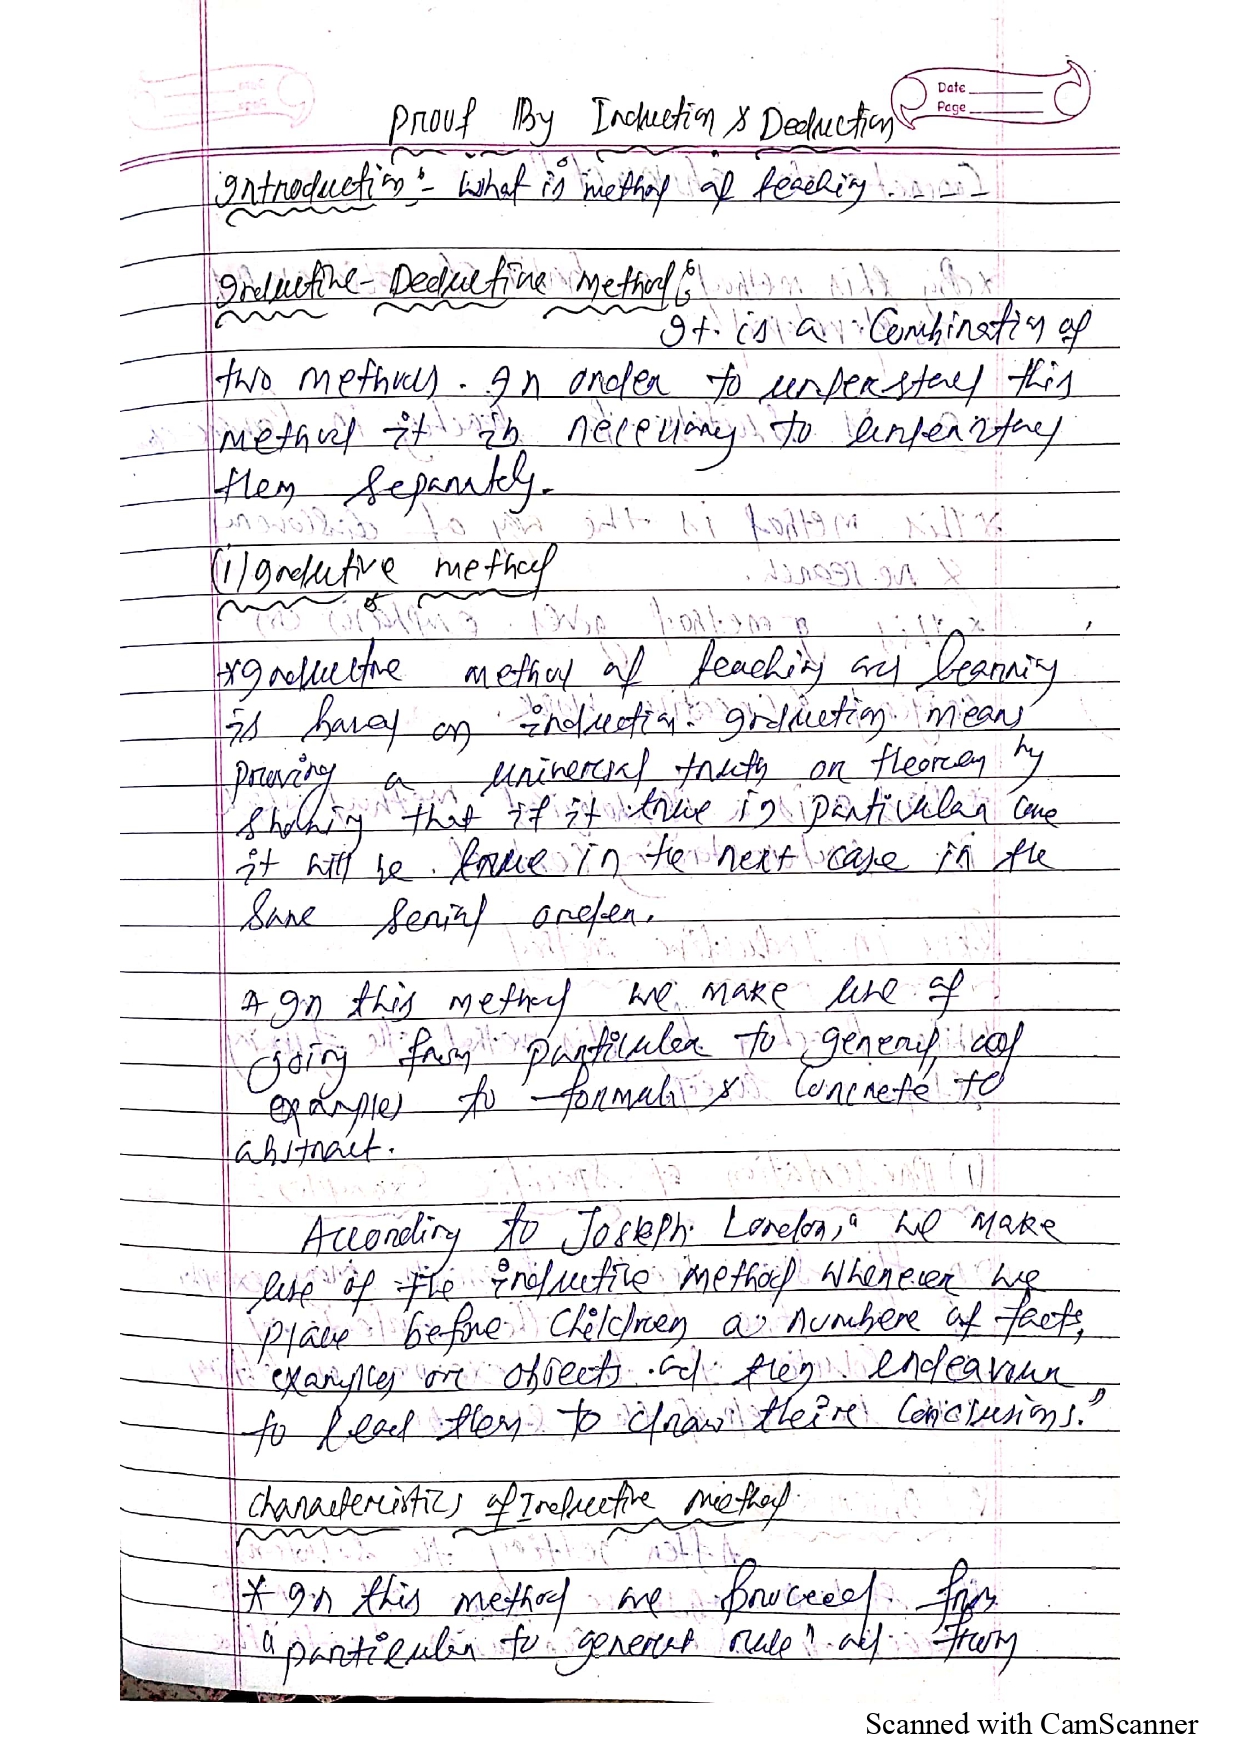 Date
Page
Proof By Induction & Deduction
Introduction:- What is method of teaching
Inductive-Deductive Method:
It is a Combination of
two methods. In order to understand this
method it is necessary to understand
them separately.
(i) Inductive method
*Inductive method of teaching and learning
is based on induction. Induction means
proving a universal truth or theorem by
showing that if it true in particular case
it will be true in the next case in the
same serial order.
* In this method we make use of
going from particular to general, and
examples to formula & concrete to
abstract.
According to Joseph London, "we make
use of the inductive method whenever we
place before children a numbere of facts,
examples or objects and then endeavour
to lead them to draw theire conclusions."
Characteristics of Inductive method
* In this method we proceed from
"particular to general rule" and from
Scanned with CamScanner